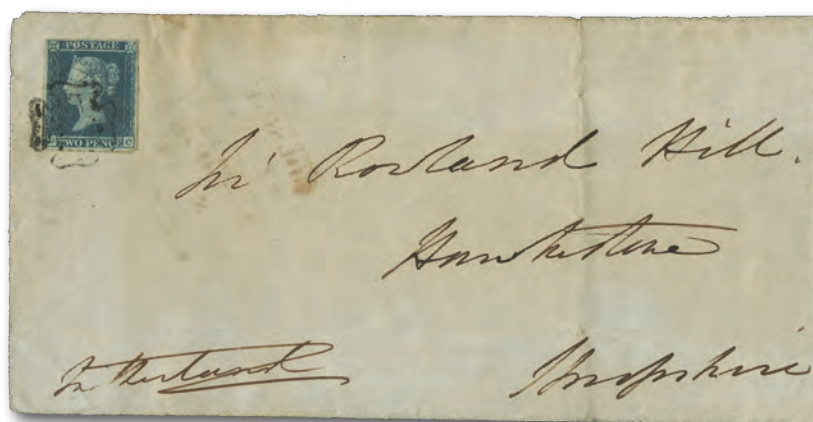 POSTAGE
TWO PENCE
C
Sir Rowland Hill.
Hawkstone
Sutherland
Shropshire